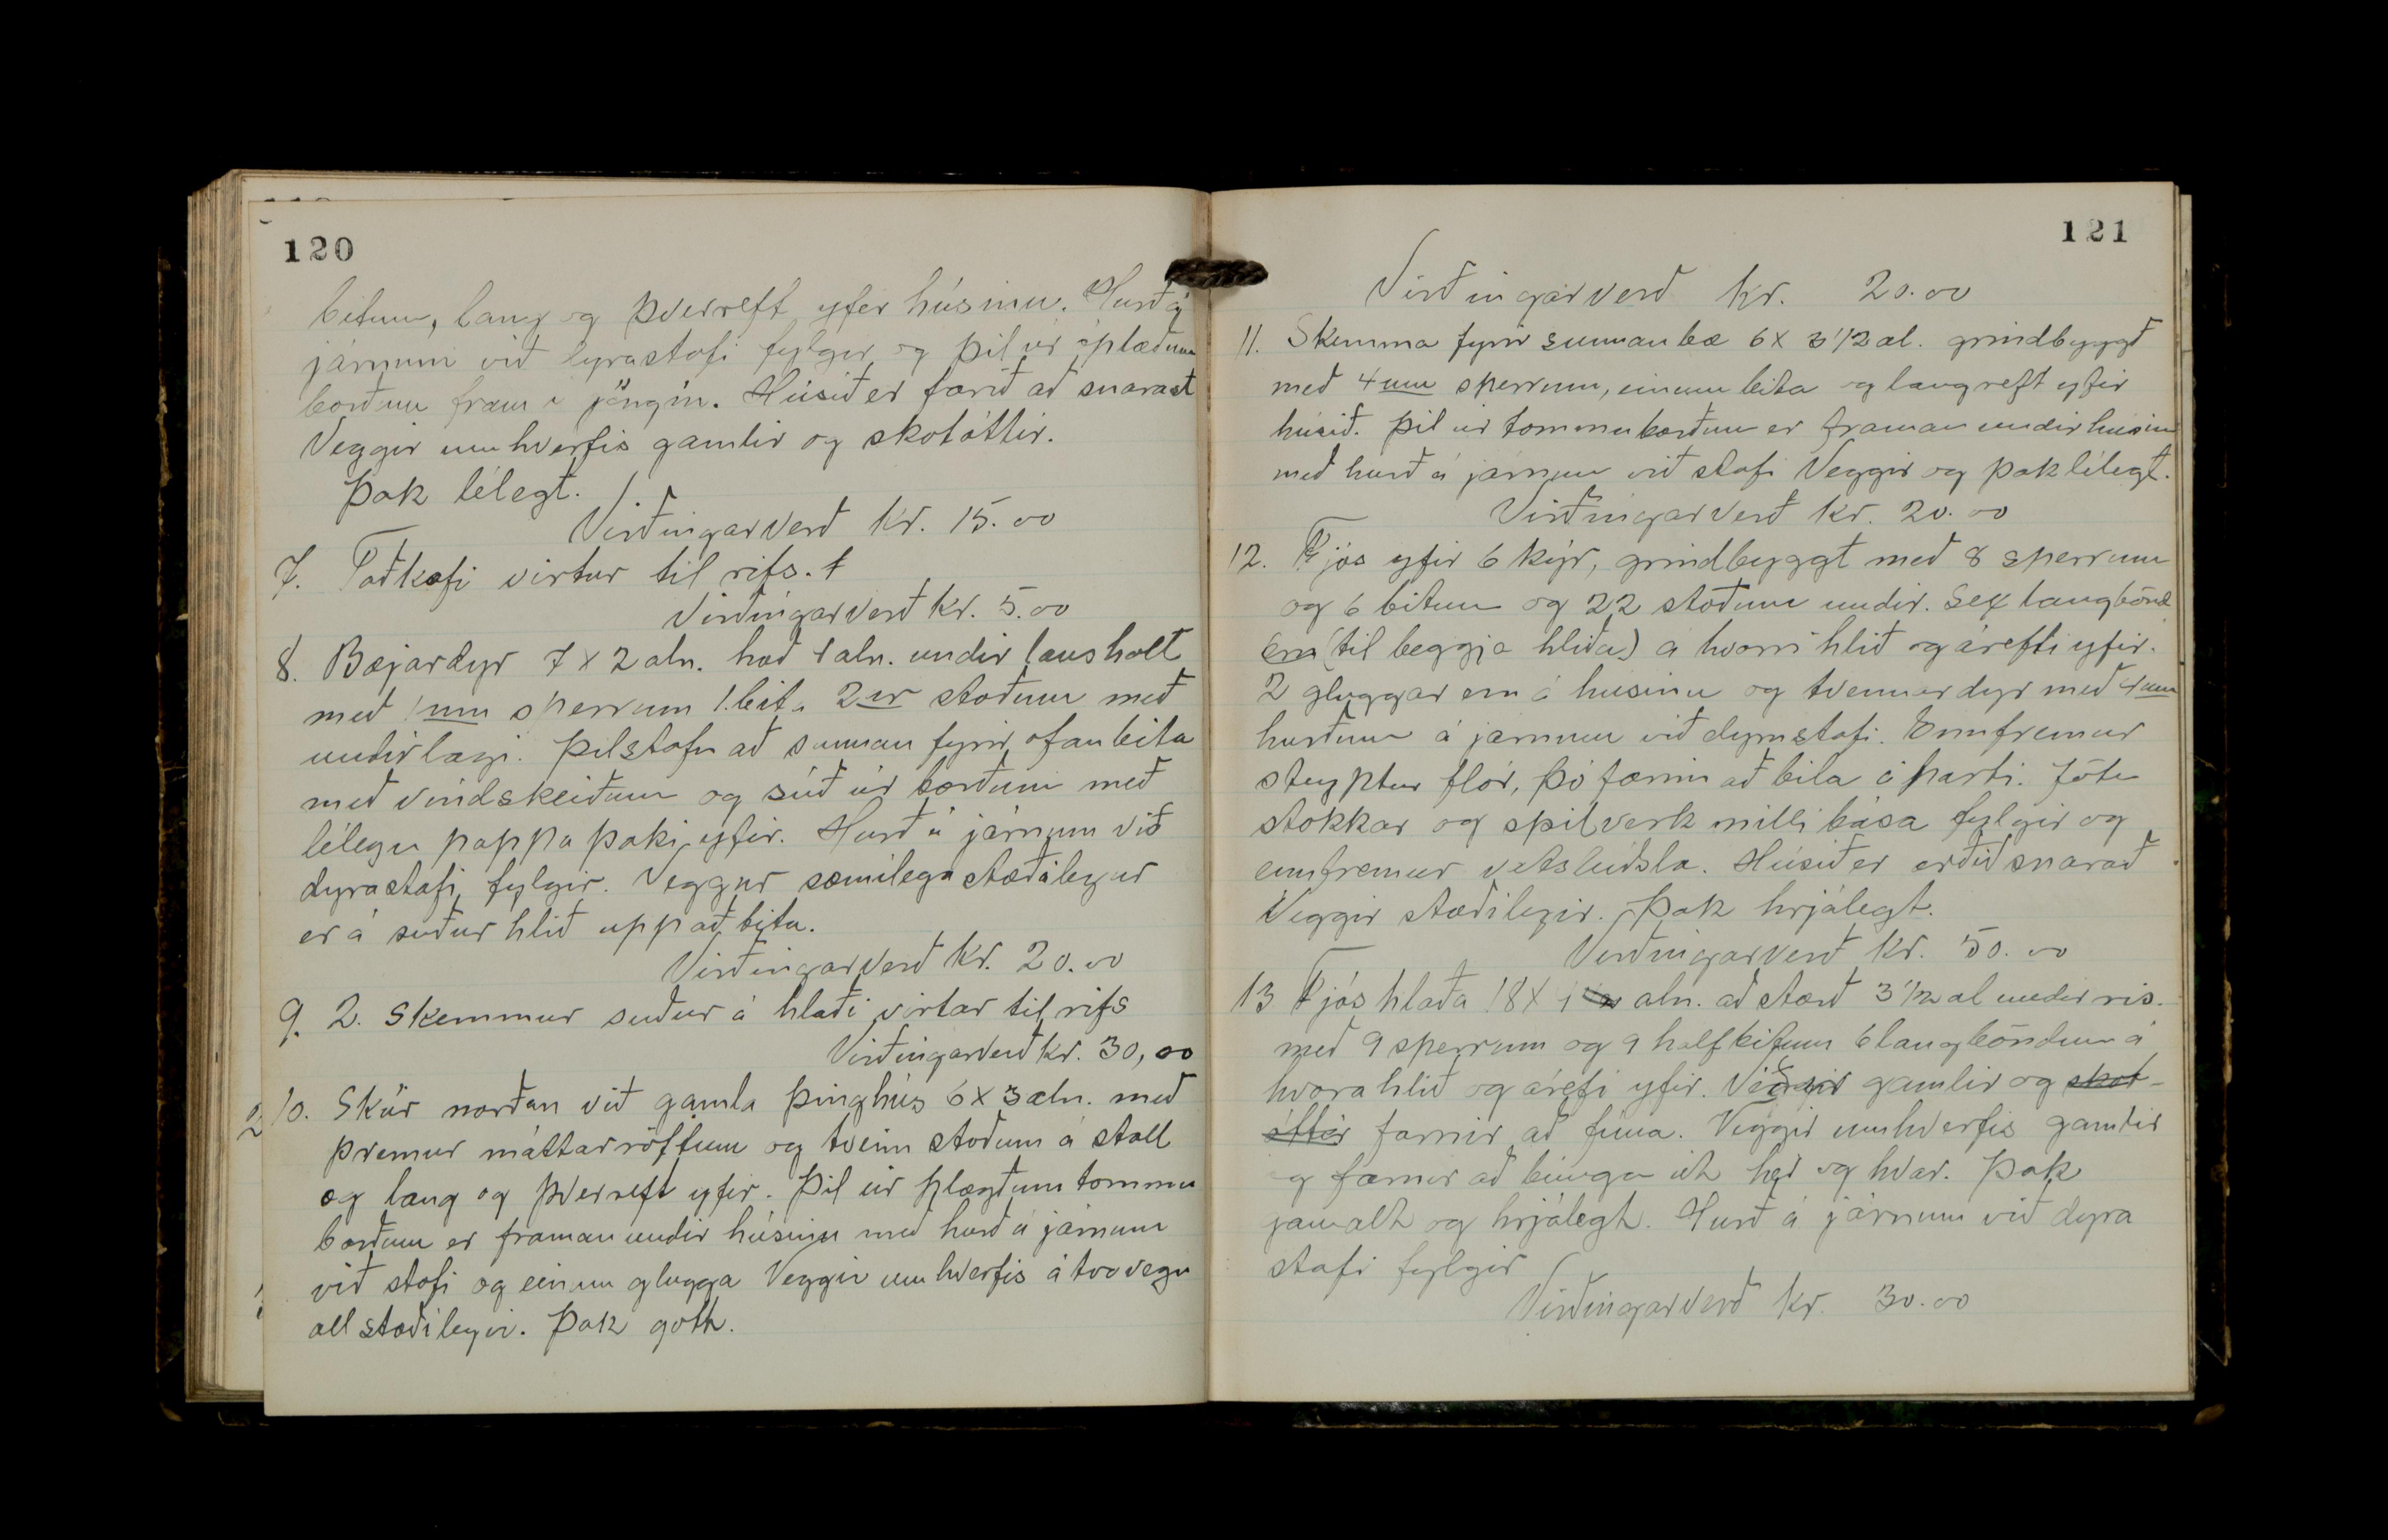 120
bitum, lang og þverreft yfir húsinu. Hurð á
járnum við dyrastafi fylgir og þil úr óplægðum
borðum fram í göngin. Húsið er farið að snarast
Veggir umhverfis gamlir og skotóttir.
Þak lélegt.
Virðingarverð kr. 15.00
7. Taðkofi virtur til rifs.
Virðingarverð kr. 5.00
8. Bæjardyr 7 x 2 aln. hæð 4 aln. undir lausholt
með 4um sperrum 1. bita 2ur stoðum með
undirlægi. Þilstafn að sunnan fyrir ofan bita
með vindskeiðum og súð úr borðum með
lélegu pappa þaki yfir. Hurð á járnum við
dyrastafi fylgir. Veggur sæmilega stæðilegur
er á suður hlið upp að bita.
Virðingarverð kr. 20.00
9. 2. Skemmur suður á hlaði virtar til rifs
Virðingarverð kr. 30,00
10. Skúr norðan við gamla þinghús 6 x 3 aln. með
þremur máttarröftum og tveim stoðum á stall
og lang og þverreft yfir. Þil úr plægðum tommu
borðum er framan undir húsinu með hurð á járnum
við stafi og einum glugga Veggir umhverfis á tvo vegu
all stæðilegir. Þak gott.
121
Virðingarverð kr. 20.00
11. Skemma fyrir sunnan bæ 6 x 3 1/2 al. grindbyggð
með 4um sperrum, einum bita og langreft yfir
húsið. Þil úr tommuborðum er framan undir húsinu
með hurð á járnum við stafi Veggir og þak lélegt.
Virðingarverð kr. 20.00
12. Fjós yfir 6 kýr, grindbyggt með 8 sperrum
og 6 bitum og 22 stoðum undir. Sex langbönd
eru (til beggja hliða) á hvorri hlið og árefti yfir.
2 gluggar eru á húsinu og tvennar dyr með 4um
hurðum á járnum við dyrustafi. Ennfremur
steyptur flór, þó farinn að bila á parti. Jötu
stokkar og spilverk milli bása fylgir og
ennfremur vatsleiðsla. Húsið er orðið snarað
Veggir stæðilegir. Þak hrjálegt.
Virðingarverð kr. 50.00
13 Fjós hlaða 18 x aln. að stærð 3 1/2 al undir ris.
með 9 sperrum og 9 hálfbitum 6 langböndum á
hvora hlið og árefti yfir. Viðir gamlir og skot-
óttir farnir að fúna. Veggir umhverfis gamlir
og farnir að bunga út hér og hvar. Þak
gamalt og hrjálegt. Hurð á járnum við dyra
stafi fylgir
Virðingarverð kr. 30.00